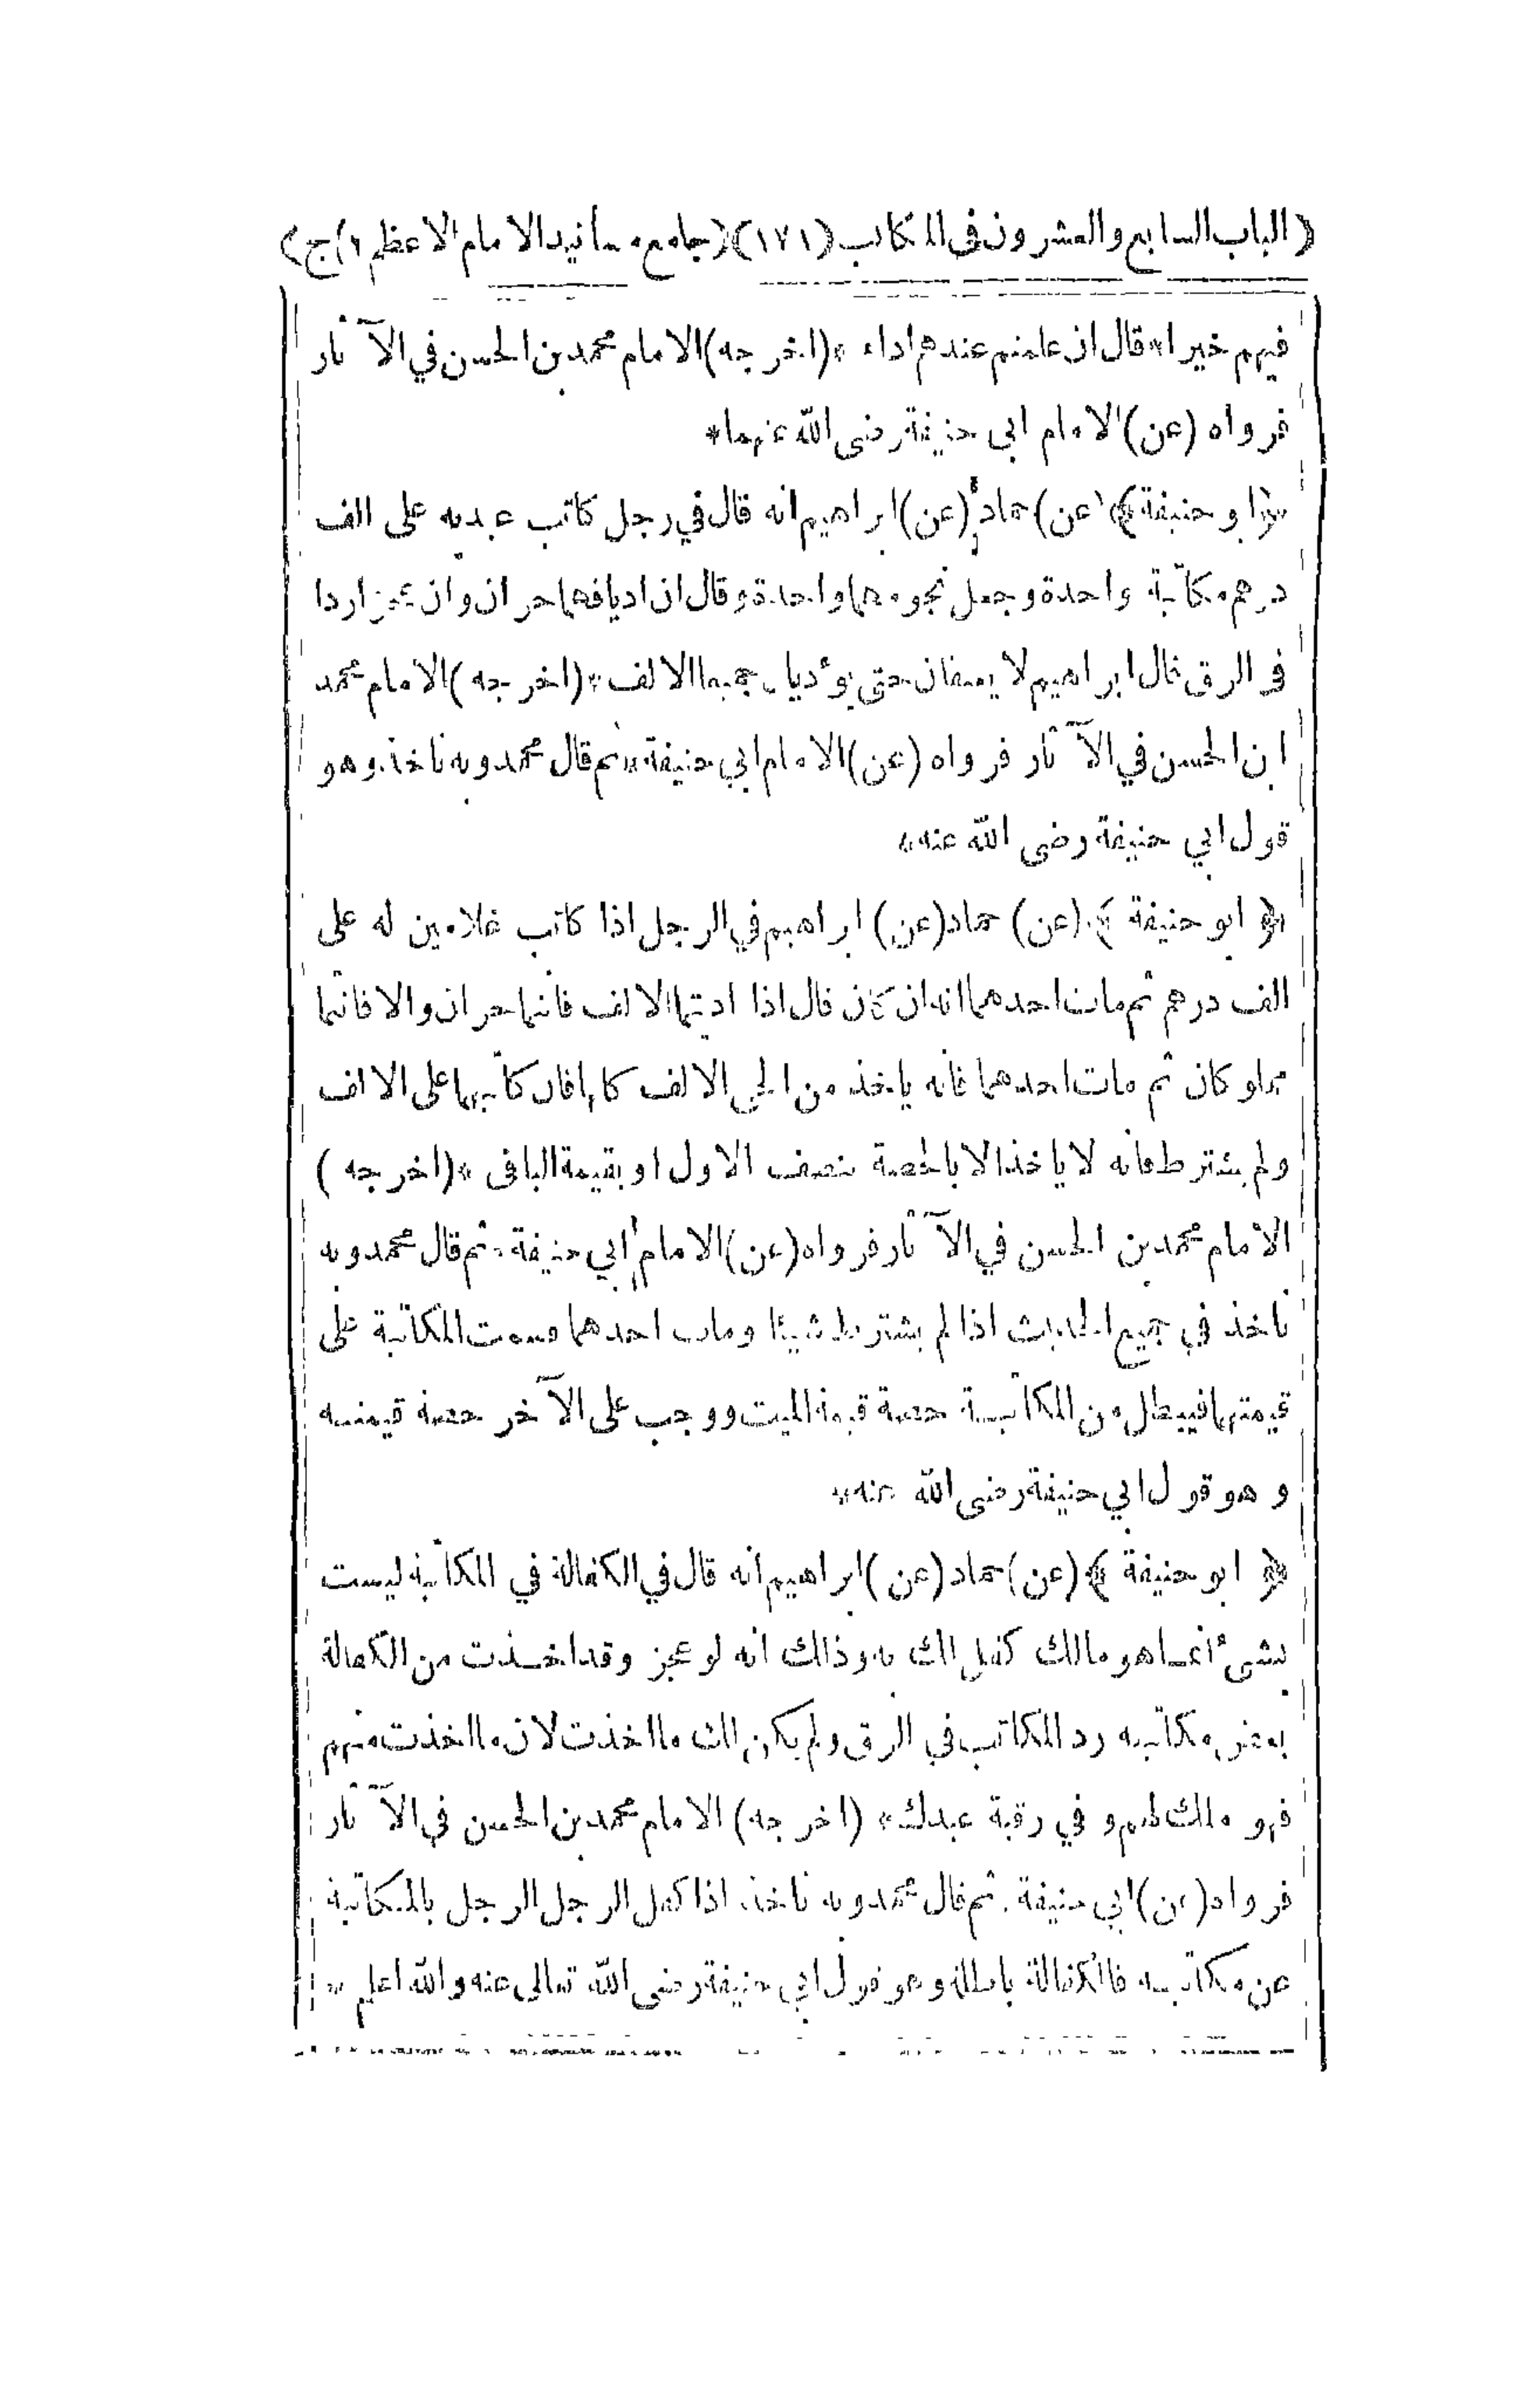 (الباب السابع والعشرون فى المكاتب (١٧١) (جامع مسانيد الامام الاعظم ٢) ج)
فيهم خيرا* قال ان علمتم عندهم اداء *(اخرجه) الامام محمد بن الحسن في الآثار
فرواه (عن) الامام ابي حنيفة رضى الله عنهما*
﴿ابو حنيفة﴾ (عن) حماد (عن) ابراهيم انه قال في رجل كاتب عبديه على الف
درهم مكاتبة واحدة وجعل نجومهما واحدة وقال ان اديا فهما حران وان عجزا ردا
فى الرق قال ابراهيم لا يعتقان حتى يؤديا جميعا الالف *(اخرجه) الامام محمد
ابن الحسن في الآثار فرواه (عن) الامام ابي حنيفة* ثم قال محمد وبه ناخذ وهو
قول ابي حنيفة رضى الله عنه*
﴿ ابو حنيفة ﴾ (عن) حماد (عن) ابراهيم في الرجل اذا كاتب غلامين له على
الف درهم ثم مات احدهما انه ان كان قال اذا اديتما الالف فانتما حران والا فانتما
كان ثم مات احدهما فانه ياخذ من الحي الالف كلها فان كاتبهما على الالف
ولم يشترط فانه لا ياخذ الا بالحصة نصف الاول او بقيمة الباقى *(اخرجه)
الامام محمد بن الحسن في الآثار فرواه (عن) الامام ابي حنيفة* ثم قال محمد وبه
ناخذ في جميع الحديث اذا لم يشترط شيئا ومات احدهما قسمت المكاتبة على
قيمتهما فيبطل من المكاتبة حصة قيمة الميت ووجب على الآخر حصة قيمته
وهو قول ابي حنيفة رضى الله عنه*
﴿ ابو حنيفة ﴾ (عن) حماد (عن) ابراهيم انه قال في الكفالة في المكاتبة ليست
بشىء انما هو مالك كفل لك به وذلك انه لو عجز وقد اخذت من الكفالة
بعض مكاتبه رد المكاتب في الرق ولم يكن لك ما اخذت لان ما اخذت منهم
فهو ملك لهم وفي رقبة عبدك* (اخرجه) الامام محمد بن الحسن فى الآثار
فرواه (عن) ابي حنيفة* ثم قال محمد وبه ناخذ اذا كفل الرجل الرجل بالمكاتبة
عن مكاتبه فالكفالة باطلة وهو قول ابي حنيفة رضى الله تعالى عنه والله اعلم *